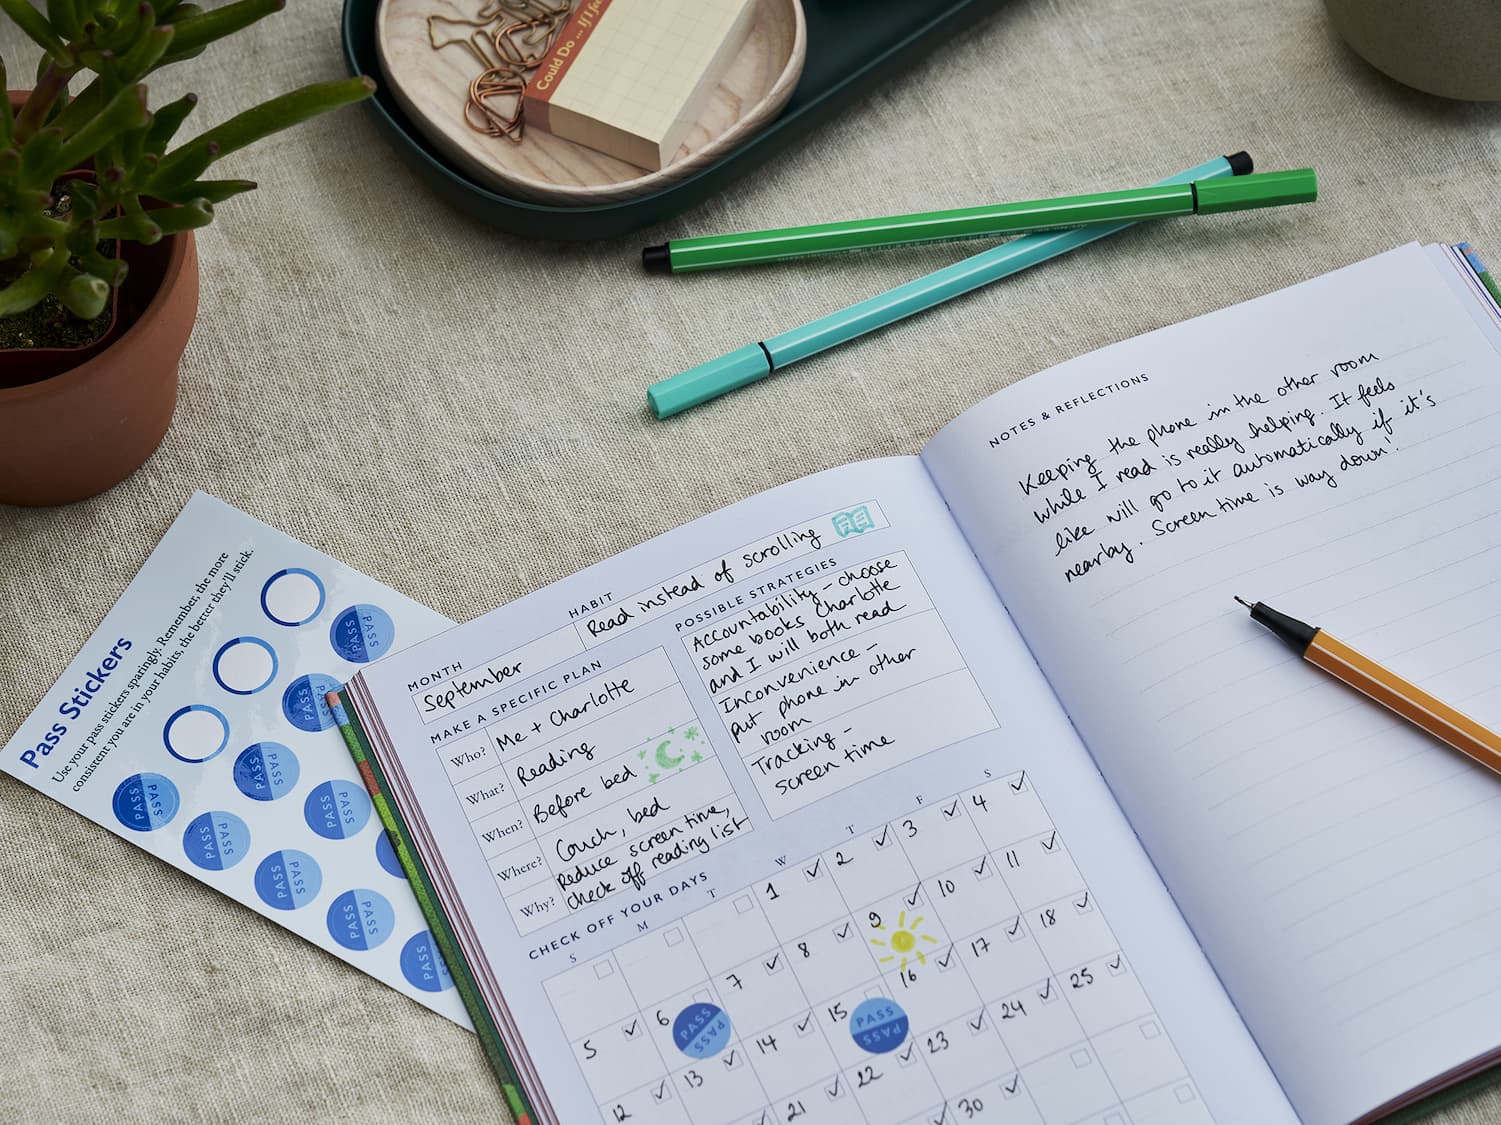 Could Do ... If I
Pass Stickers
Use your pass stickers sparingly. Remember, the more
consistent you are in your habits, the better they'll stick.
PASS PASS
PASS PASS
PASS PASS
PASS PASS
PASS PASS
PASS PASS
PASS PASS
PASS PASS
PASS
MONTH
September
HABIT
Read instead of scrolling
MAKE A SPECIFIC PLAN
Who? Me + Charlotte
What? Reading
When? Before bed
Where? Couch, bed
Why? Reduce screen time,
check off reading list
POSSIBLE STRATEGIES
Accountability - choose
some books Charlotte
and I will both read
Inconvenience -
put phone in other
room
Tracking -
screen time
CHECK OFF YOUR DAYS
S M T W T F S
1 2 3 4
5 6 7 8 9 10 11
12 13 14 15 16 17 18
21 22 23 24 25
30
PASS PASS
PASS PASS
NOTES & REFLECTIONS
Keeping the phone in the other room
while I read is really helping. It feels
like will go to it automatically if it's
nearby. Screen time is way down!